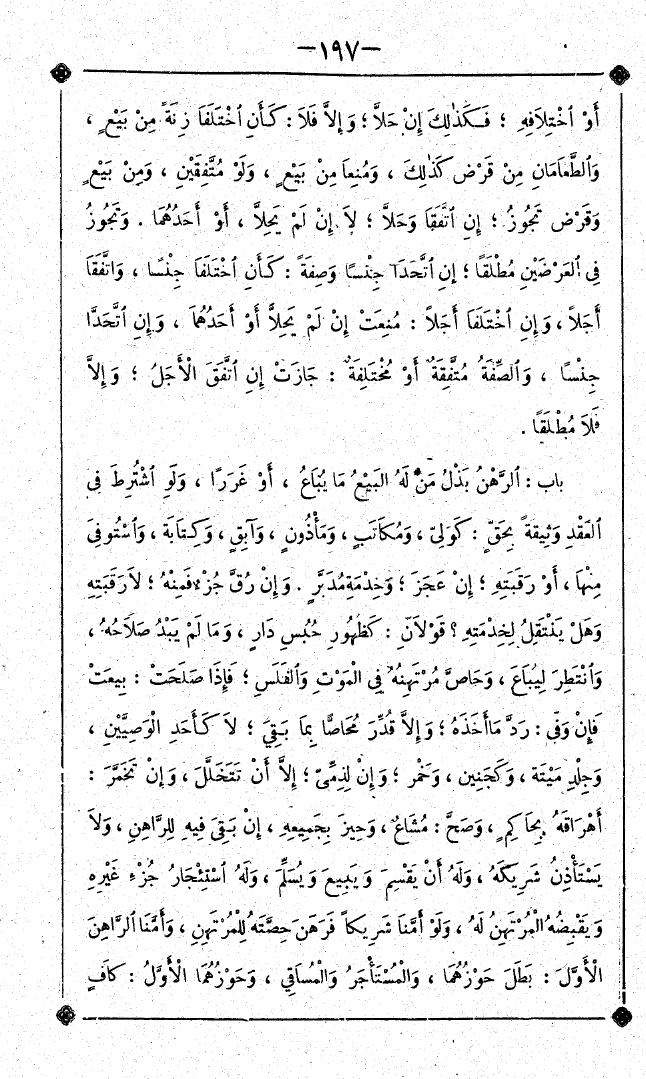 —١٩٧—
أَوْ ٱخْتِلَافِهِ ؛ فَكَذٰلِكَ إِنْ حَلَّا ؛ وَإِلَّا فَلَا : كَأَنِ ٱخْتَلَفَا زِنَةً مِنْ بَيْعٍ ،
وَٱلطَّعَامَانِ مِنْ قَرْضٍ كَذٰلِكَ ، وَمُنِعَا مِنْ بَيْعٍ ، وَلَوْ مُتَّفِقَيْنِ ، وَمِنْ بَيْعٍ
وَقَرْضٍ تَجُوزُ ؛ إِنِ ٱتَّفَقَا وَحَلَّا ؛ لَا إِنْ لَمْ يَحِلَّا ، أَوْ أَحَدُهُمَا . وَتَجُوزُ
فِى ٱلعَرْضَيْنِ مُطْلَقًا ؛ إِنِ ٱتَّحَدَا جِنْسًا وَصِفَةً : كَأَنِ ٱخْتَلَفَا جِنْسًا ، وَاتَّفَقَا
أَجَلًا ، وَإِنِ ٱخْتَلَفَا أَجَلًا : مُنِعَتْ إِنْ لَمْ يَحِلَّا أَوْ أَحَدُهُمَا ، وَإِنِ ٱتَّحَدَا
جِنْسًا ، وَٱلصِّفَةُ مُتَّفِقَةٌ أَوْ مُخْتَلِفَةٌ : جَازَتْ إِنِ ٱتَّفَقَ الْأَجَلُ ؛ وَإِلَّا
فَلَا مُطْلَقًا .
باب : ٱلرَّهْنُ بَذْلُ مَنْ لَهُ البَيْعُ مَا يُبَاعُ ، أَوْ غَرَرًا ، وَلَوِ ٱشْتُرِطَ فِى
ٱلعَقْدِ وَثِيقَةً بِحَقٍّ : كَوَلِىٍّ ، وَمُكَاتَبٍ ، وَمَأْذُونٍ ، وَآبِقٍ ، وَكِتَابَةٍ ، وَٱسْتُوفِىَ
مِنْهَا ، أَوْ رَقَبَتِهِ ؛ إِنْ عَجَزَ ؛ وَخِدْمَةِ مُدَبَّرٍ . وَإِنْ رُقَّ جُزْءٌ فَمِنْهُ ؛ لَا رَقَبَتِهِ
وَهَلْ يَنْتَقِلُ لِخِدْمَتِهِ ؟ قَوْلَانِ : كَظُهُورِ حُبُسِ دَارٍ ، وَمَا لَمْ يَبْدُ صَلَاحُهُ ،
وَٱنْتُظِرَ لِيُبَاعَ ، وَحَاصَّ مُرْتَهِنُهُ فِي الْمَوْتِ وَٱلفَلَسِ ؛ فَإِذَا صَلَحَتْ : بِيعَتْ
فَإِنْ وَفّٰى : رَدَّ مَا أَخَذَهُ ؛ وَإِلَّا قُدِّرَ مُحَاصًّا بِمَا بَقِيَ ؛ لَا كَأَحَدِ الْوَصِيَّيْنِ ،
وَجِلْدِ مَيْتَةٍ ، وَكَجَنِينٍ ، وَخَمْرٍ ؛ وَإِنْ لِذِمِّىٍّ ؛ إِلَّا أَنْ تَتَخَلَّلَ ، وَإِنْ تَخَمَّرَ :
أَهْرَاقَهُ بِحَاكِمٍ ، وَصَحَّ : مُشَاعٌ ، وَحِيزَ بِجَمِيعِهِ ، إِنْ بَقِيَ فِيهِ لِلرَّاهِنِ ، وَلَا
يَسْتَأْذِنُ شَرِيكَهُ ، وَلَهُ أَنْ يَقْسِمَ وَيَبِيعَ وَيُسَلِّمَ ، وَلَهُ ٱسْتِئْجَارُ جُزْءِ غَيْرِهِ
وَيَقْبِضُهُ الْمُرْتَهِنُ لَهُ ، وَلَوْ أَمَّنَا شَرِيكاً فَرَهَنَ حِصَّتَهُ لِلْمُرْتَهِنِ ، وَأَمَّنَا ٱلرَّاهِنَ
الْأَوَّلَ : بَطَلَ حَوْزُهُمَا ، وَالْمُسْتَأْجَرُ وَالْمُسَاقِي ، وَحَوْزُهُمَا الْأَوَّلُ : كَافٍ